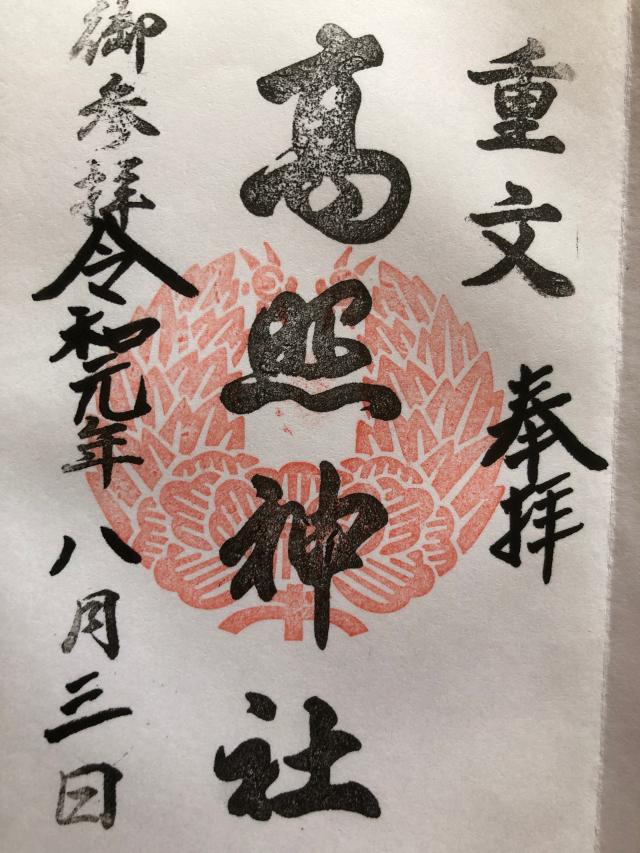 重文
奉拝
高照神社
御参拝
令和元年八月三日